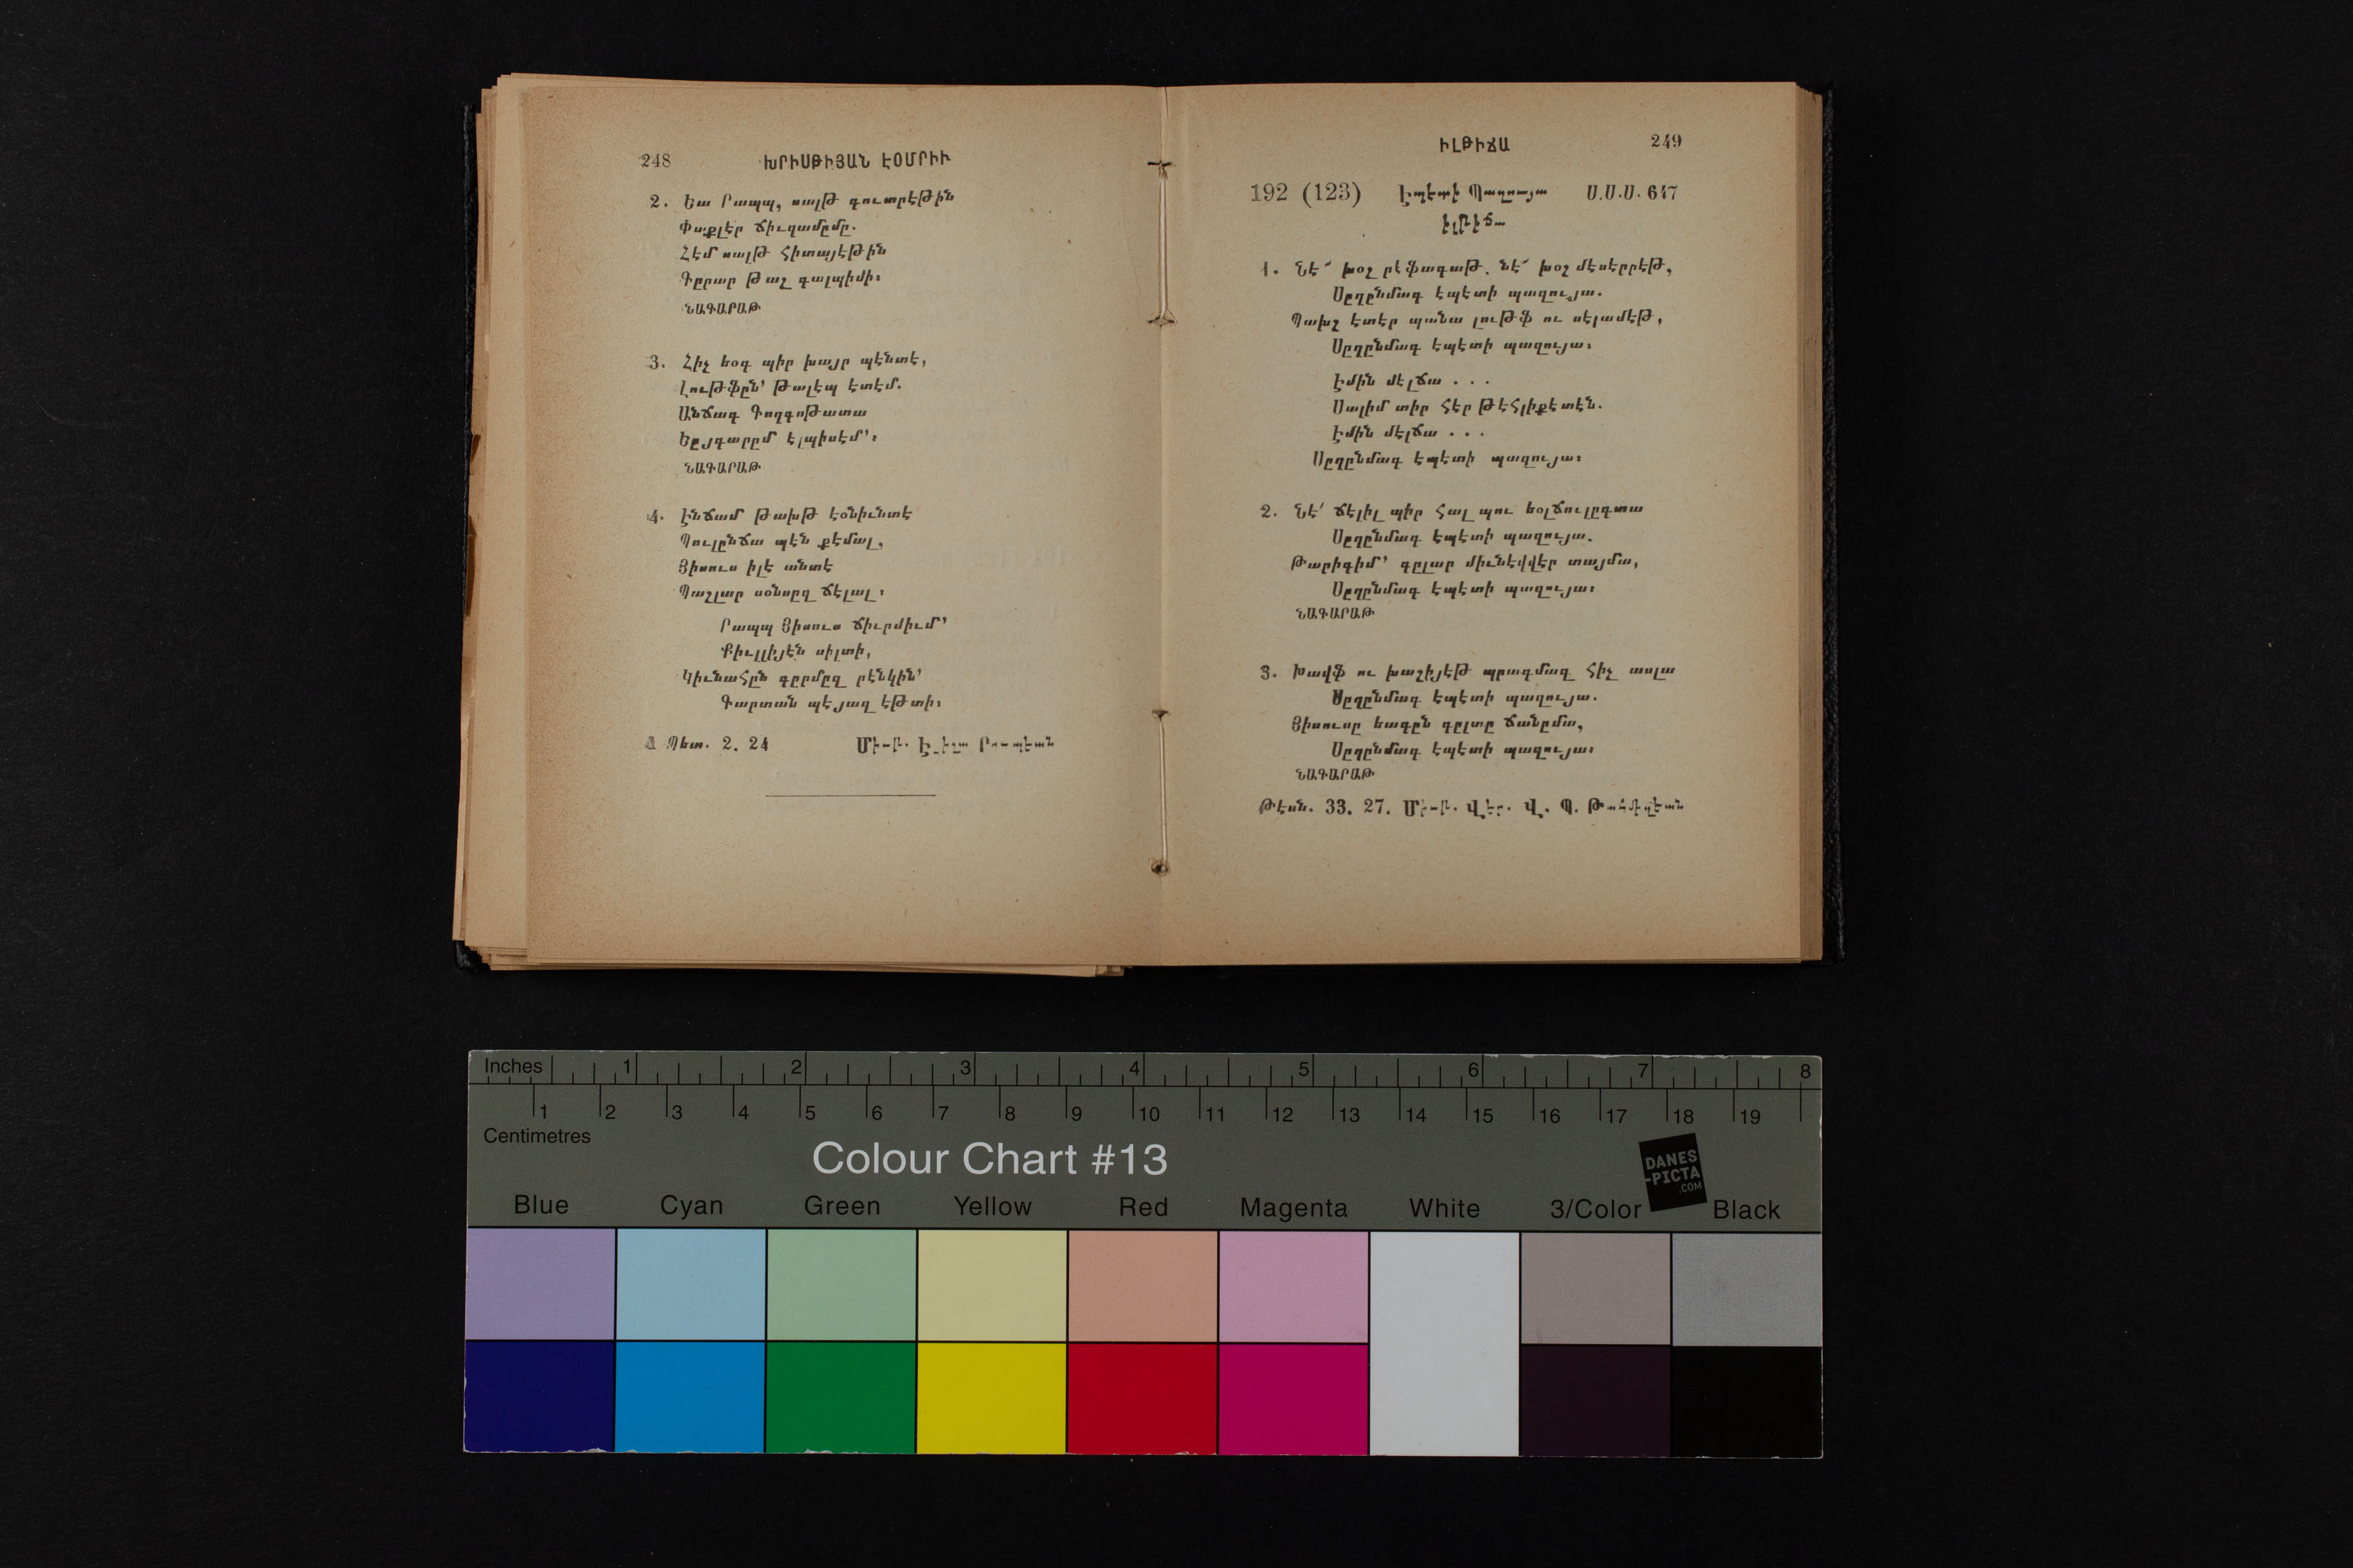 248 ԽՐԻՍԹԻՅԱՆ ԷՕՄՐԻՒ
2. Եա Րապպ, սալթ գուտրէթին
Փաքլէր ճիւզամըմը.
Հէմ սալթ հիտայէթին
Գըրար թաշ գալպիմի։
ՆԱԳԱՐԱԹ
3. Հիչ եօգ պիր խայր պէնտէ,
Լութֆըն՚ թալէպ էտէմ.
Անճագ Գողգոթատա
Եըյգարըմ էլպիսէմ՚։
ՆԱԳԱՐԱԹ
4. Էնճամ թախթ էօնիւնտէ
Պուլընճա պէն քէմալ,
Յիսուս իլէ անտէ
Պաշլար սօնսըզ ճէլալ։
Րապպ Յիսուս ճիւրմիւմ՚
Քիւլլիյէն սիլտի,
Կիւնահըն գըրմըզ րէնկին՚
Գարտան պէյազ էթտի։
Ա Պետ. 2. 24
ԻԼԹԻՃԱ 249
192 (123) Էպէտի Պազույա Ս.Ս.Ս. 647
իլթիճա
1. Նէ՜ խօշ րէֆագաթ. նէ՜ խօշ մէսէրրէթ,
Սըղընմագ էպէտի պազույա.
Պախշ էտէր պանա լութֆ ու սէլամէթ,
Սըղընմագ էպէտի պազույա։
Էմին մէլճա . . .
Սալիմ տիր հէր թէհլիքէտէն.
Էմին մէլճա . . .
Սըղընմագ էպէտի պազույա։
2. Նէ՛ ճէլիլ պիր հալ պու եօլճուլըգտա
Սըղընմագ էպէտի պազույա.
Թարիգիմ՚ գըլար միւնէվվէր տայմա,
Սըղընմագ էպէտի պազույա։
ՆԱԳԱՐԱԹ
3. Խավֆ ու խաշիյէթ պրագմազ հիչ ասլա
Սըղընմագ էպէտի պազույա.
Յիսուսը եագըն գըլտը ճանըմա,
Սըղընմագ էպէտի պազույա։
ՆԱԳԱՐԱԹ
Թէսն. 33. 27. Վ. Պ.
Inches 1 2 3 4 5 6 7 8
1 2 3 4 5 6 7 8 9 10 11 12 13 14 15 16 17 18 19
Centimetres
Colour Chart #13
DANES
-PICTA
.COM
Blue Cyan Green Yellow Red Magenta White 3/Color Black